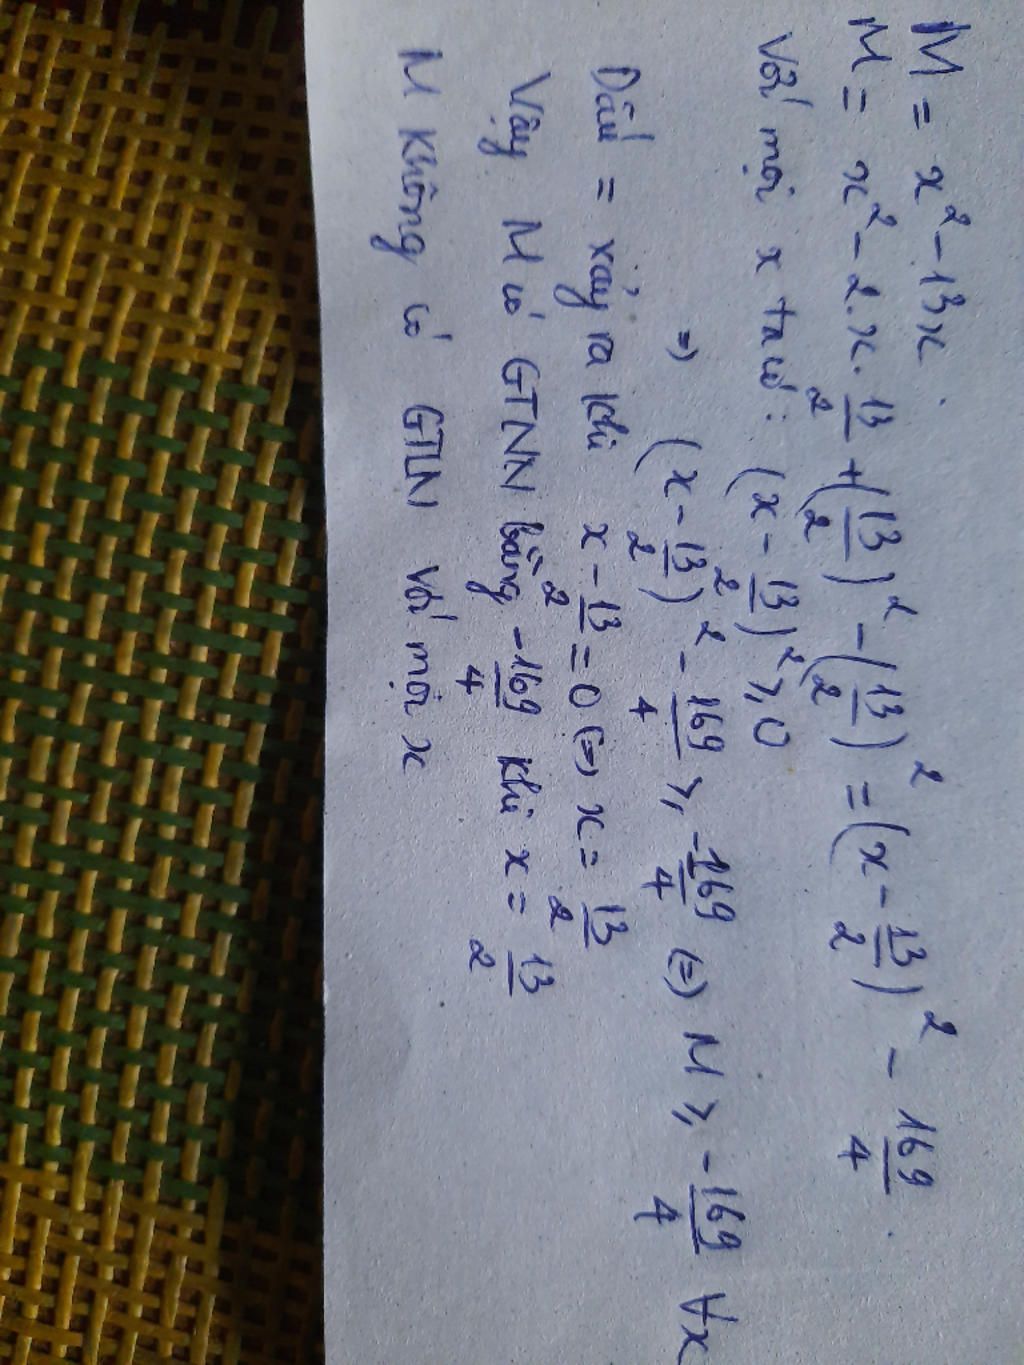 M = x² - 13x.
M = x² - 2.x. 13/2 + (13/2)² - (13/2)² = (x - 13/2)² - 169/4.
Với mọi x ta có: (x - 13/2)² ≥ 0
=> (x - 13/2)² - 169/4 ≥ -169/4 (=) M ≥ -169/4 ∀x
Dấu = xảy ra khi x - 13/2 = 0 (=) x = 13/2
Vậy M có GTNN bằng -169/4 khi x = 13/2
M không có GTLN với mọi x